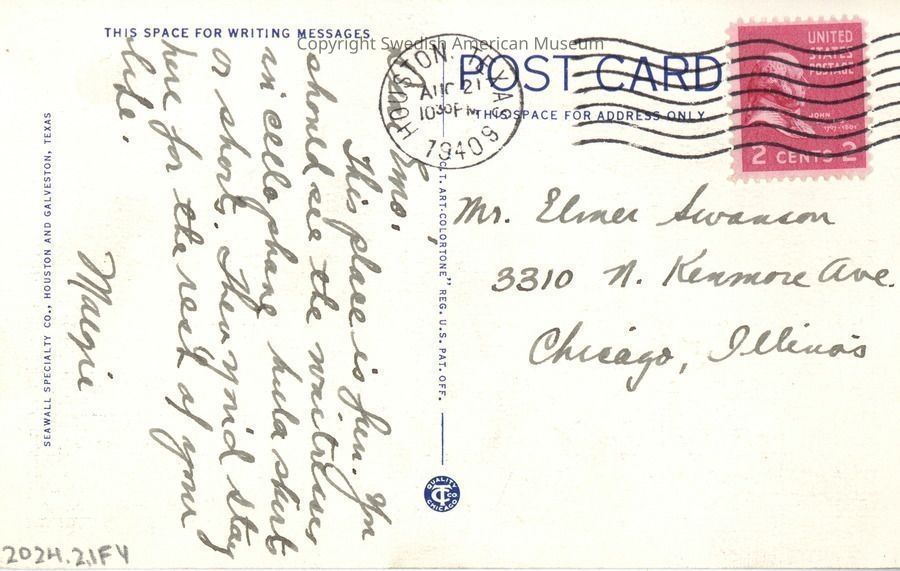 THIS SPACE FOR WRITING MESSAGES
Copyright Swedish American Museum
POST CARD
THIS SPACE FOR ADDRESS ONLY
HOUSTON, TEXAS
AUG 21
1030PM
1940
UNITED
STATES
POSTAGE
JOHN
2 CENTS 2
This place is fun. You
should see the waitresses
in cellophane hula skirts
or shorts. Then you'd stay
here for the rest of your
life.
Margie
Mr. Elmer Swanson
3310 N. Kenmore Ave.
Chicago, Illinois
SEAWALL SPECIALTY CO., HOUSTON AND GALVESTON, TEXAS
C.T. ART-COLORTONE" REG. U.S. PAT. OFF.
QUALITY
CT
CO
CHICAGO